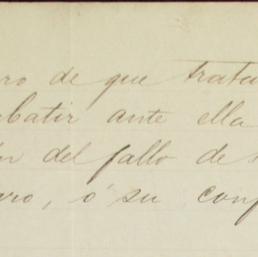 ro de que trata
batir ante ella
n del fallo de
ro, ó su conf